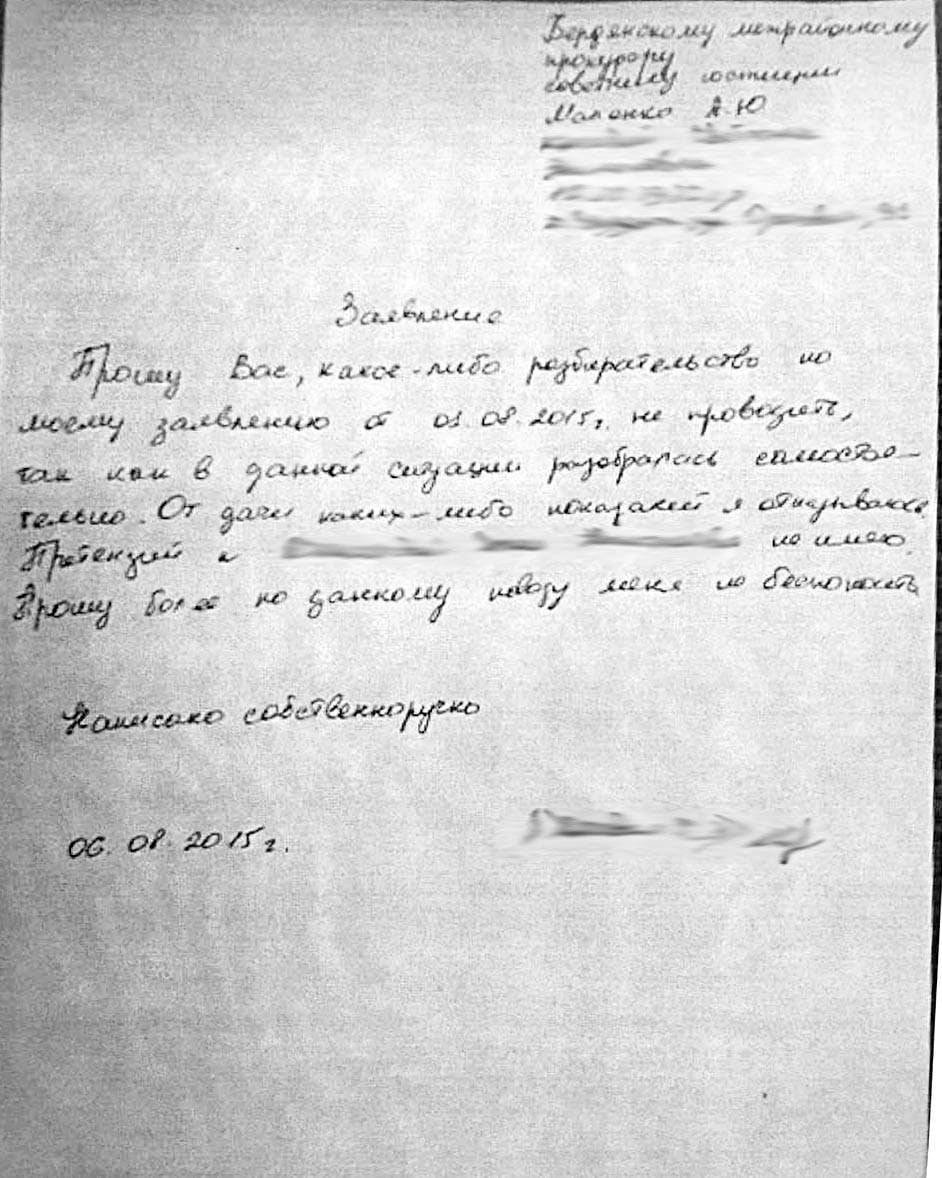 Бердянскому межрайонному
прокурору
советнику юстиции
А.Ю
Заявление
Прошу Вас, какое-либо разбирательство по
моему заявлению от 01.08.2015г. не проводить,
так как в данной ситуации разобралась самостоя-
тельно. От дачи каких-либо показаний я отказываюсь.
Претензий к не имею.
Прошу более по данному поводу меня не беспокоить
Написано собственноручно
06.08.2015г.